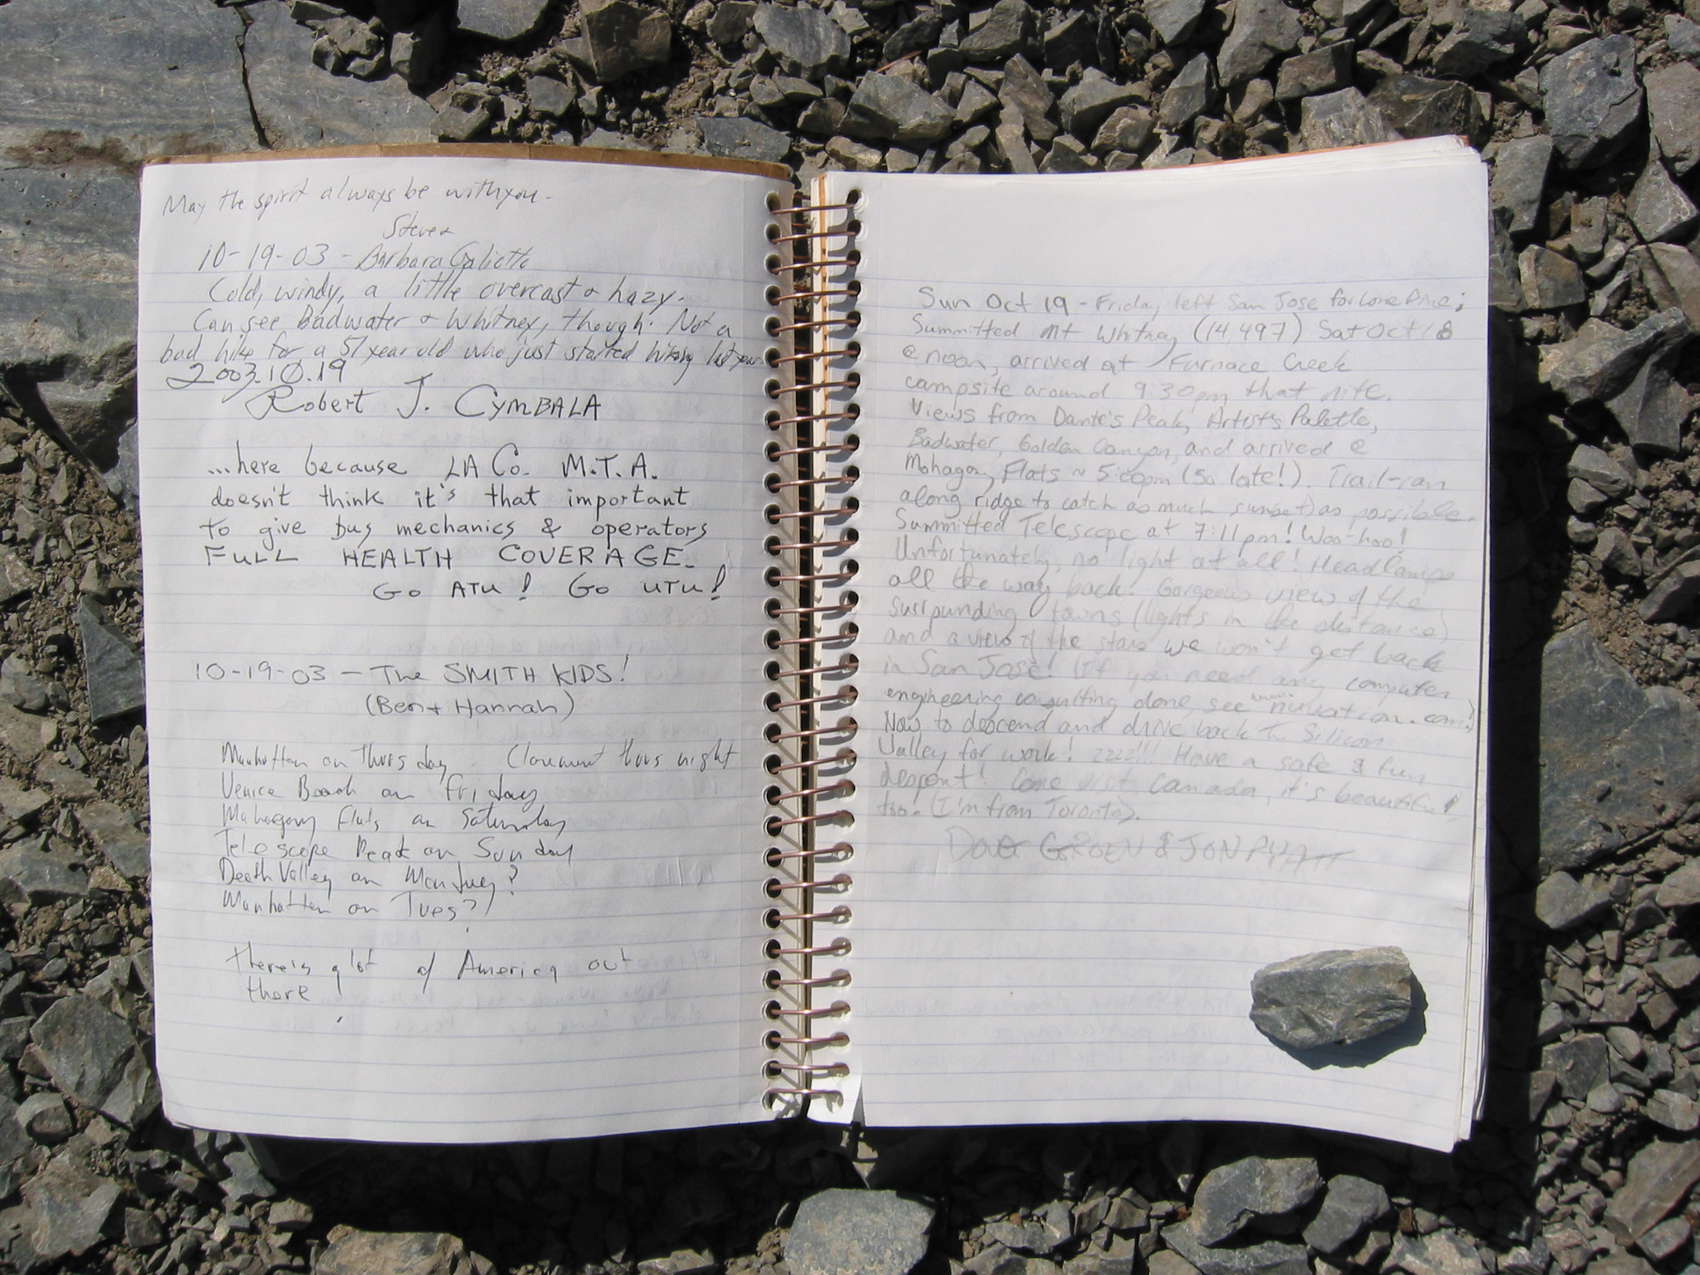 May the spirit always be with you.
Steve
10-19-03 - Barbara
Cold, windy, a little overcast & hazy.
Can see Badwater & Whitney, though. Not a
bad hike for a 51 year old who just started hiking last year
2003.10.19
Robert J. CYMBALA
...here because LA Co. M.T.A.
doesn't think it's that important
to give bus mechanics & operators
FULL HEALTH COVERAGE.
GO ATU! GO UTU!
10-19-03 - The SMITH KIDS!
(Ben + Hannah)
Manhattan on Thursday Claremont thurs night
Venice Beach on Friday
Mahogany Flats on Saturday
Telescope Peak on Sunday
Death Valley on Monday?
Manhattan on Tues?
there is a lot of America out
there
Sun Oct 19 - Friday left San Jose for Lone Pine;
Summitted Mt Whitney (14,497) Sat Oct 18
@ noon, arrived at Furnace Creek
campsite around 9:30pm that nite.
Views from Dante's Peak, Artist's Palette,
Badwater, Golden Canyon, and arrived @
Mohagany Flats ~ 5:00pm (So late!). Trail-ran
along ridge to catch as much sunset as possible.
Summitted Telescope at 7:11pm! Woo-hoo!
Unfortunately, no light at all! Headlamps
all the way back! Gorgeous view of the
surrounding towns (lights in the distance)
and a view of the stars we won't get back
in San Jose! (If you need any computer
engineering consulting done, see
Now to descend and drive back to Silicon
Valley for work! zzzz!!! Have a safe & fun
descent! Come visit Canada, it's beautiful
too. (I'm from Toronto).
& JON PYATT